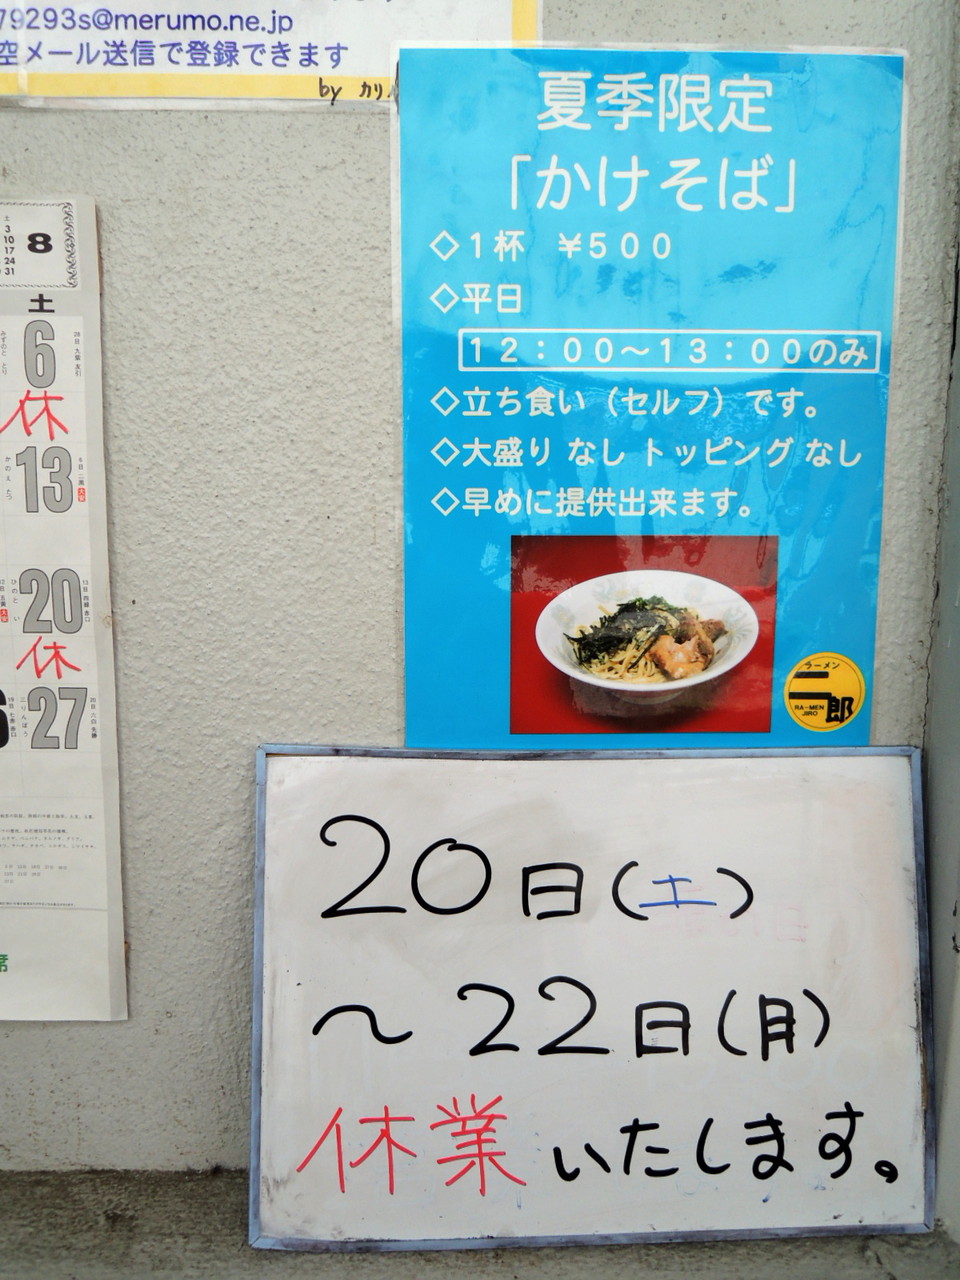 79293s@merumo.ne.jp
空メール送信で登録できます
by カリ
夏季限定
「かけそば」
◇1杯 ¥500
◇平日
12:00〜13:00のみ
◇立ち食い（セルフ）です。
◇大盛り なし トッピング なし
◇早めに提供出来ます。
ラーメン
二郎
RA-MEN
JIRO
土
3
10
17
24
31
8
土
6
休
13
20
休
27
20日(土)
〜22日(月)
休業いたします。